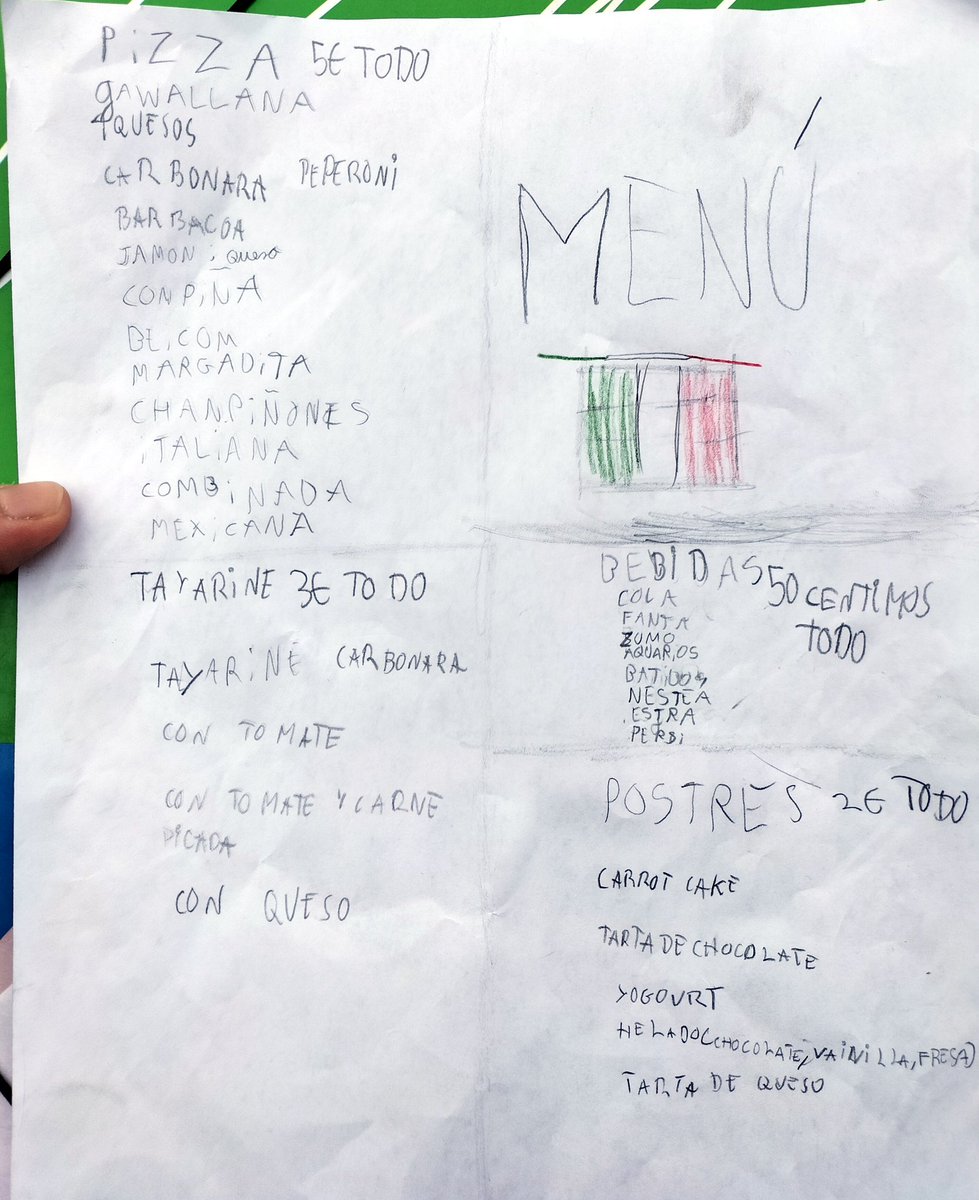 PiZZA 5€ TODO
gAWALLANA
4QUESOS
CARBONARA PEPERONi
BARBACOA
JAMON i queso
CON PiÑA
BEiCOM
MARGADiTA
CHANPiÑONES
iTALiANA
COMBiNADA
MEXiCANA
TAYARiNE 3€ TODO
TAYARiNE CARBONARA
CON TOMATE
CON TOMATE Y CARNE
PiCADA
CON QUESO
MENÚ
BEBIDAS 50 CENTIMOS
TODO
COLA
FANTA
ZUMO
AQUARiOS
BATiDOS
NESTEA
ESTRA
PERSi
POSTRES 2€ TODO
CARROT CAKE
TARTA DE CHOCOLATE
YOGOURT
HELADO(CHOCOLATE, VAiNiLLA, FRESA)
TARTA DE QUESO